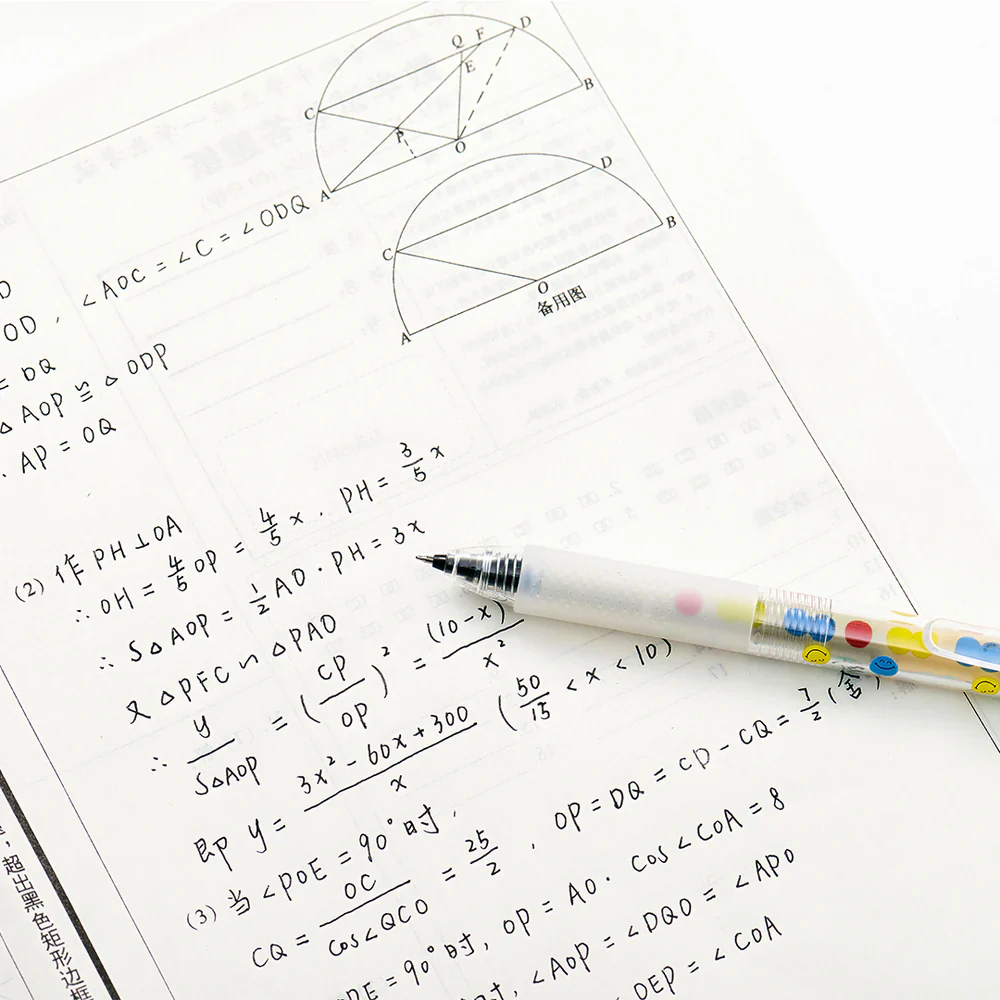 Q F D
E
C
B
P
O
A
D
B
C
O
A
备用图
D
OD, ∠AOC = ∠C = ∠ODQ
= DQ
△AOP ≌ △ODP
∴ AP = OQ
(2) 作PH⊥OA
∴ OH = 4/5 OP = 4/5 x . PH = 3/5 x
∴ S△AOP = 1/2 AO · PH = 3x
又 △PFC ∽ △PAO
∴ y/S△AOP = (CP/OP)² = (10-x)/x²
即 y = 3x² - 60x + 300/x (50/15 < x < 10)
(3) 当∠POE = 90°时,
CQ = OC/cos∠QCO = 25/2 , OP = DQ = CD - CQ = 7/2 (舍)
OE = 90°时, OP = AO · cos∠COA = 8
时, ∠AOP = ∠DQO = ∠APO
OEP = ∠COA
, 超出黑色矩形边框